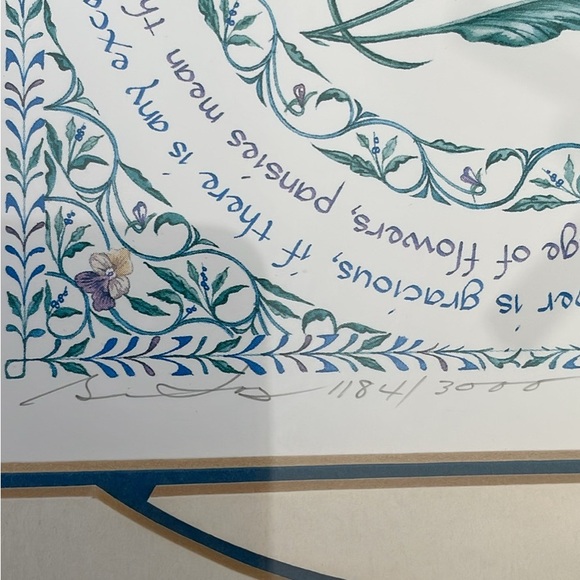 if there is any exce
ver is gracious,
ge of flowers, pansies mean th
1184/3000